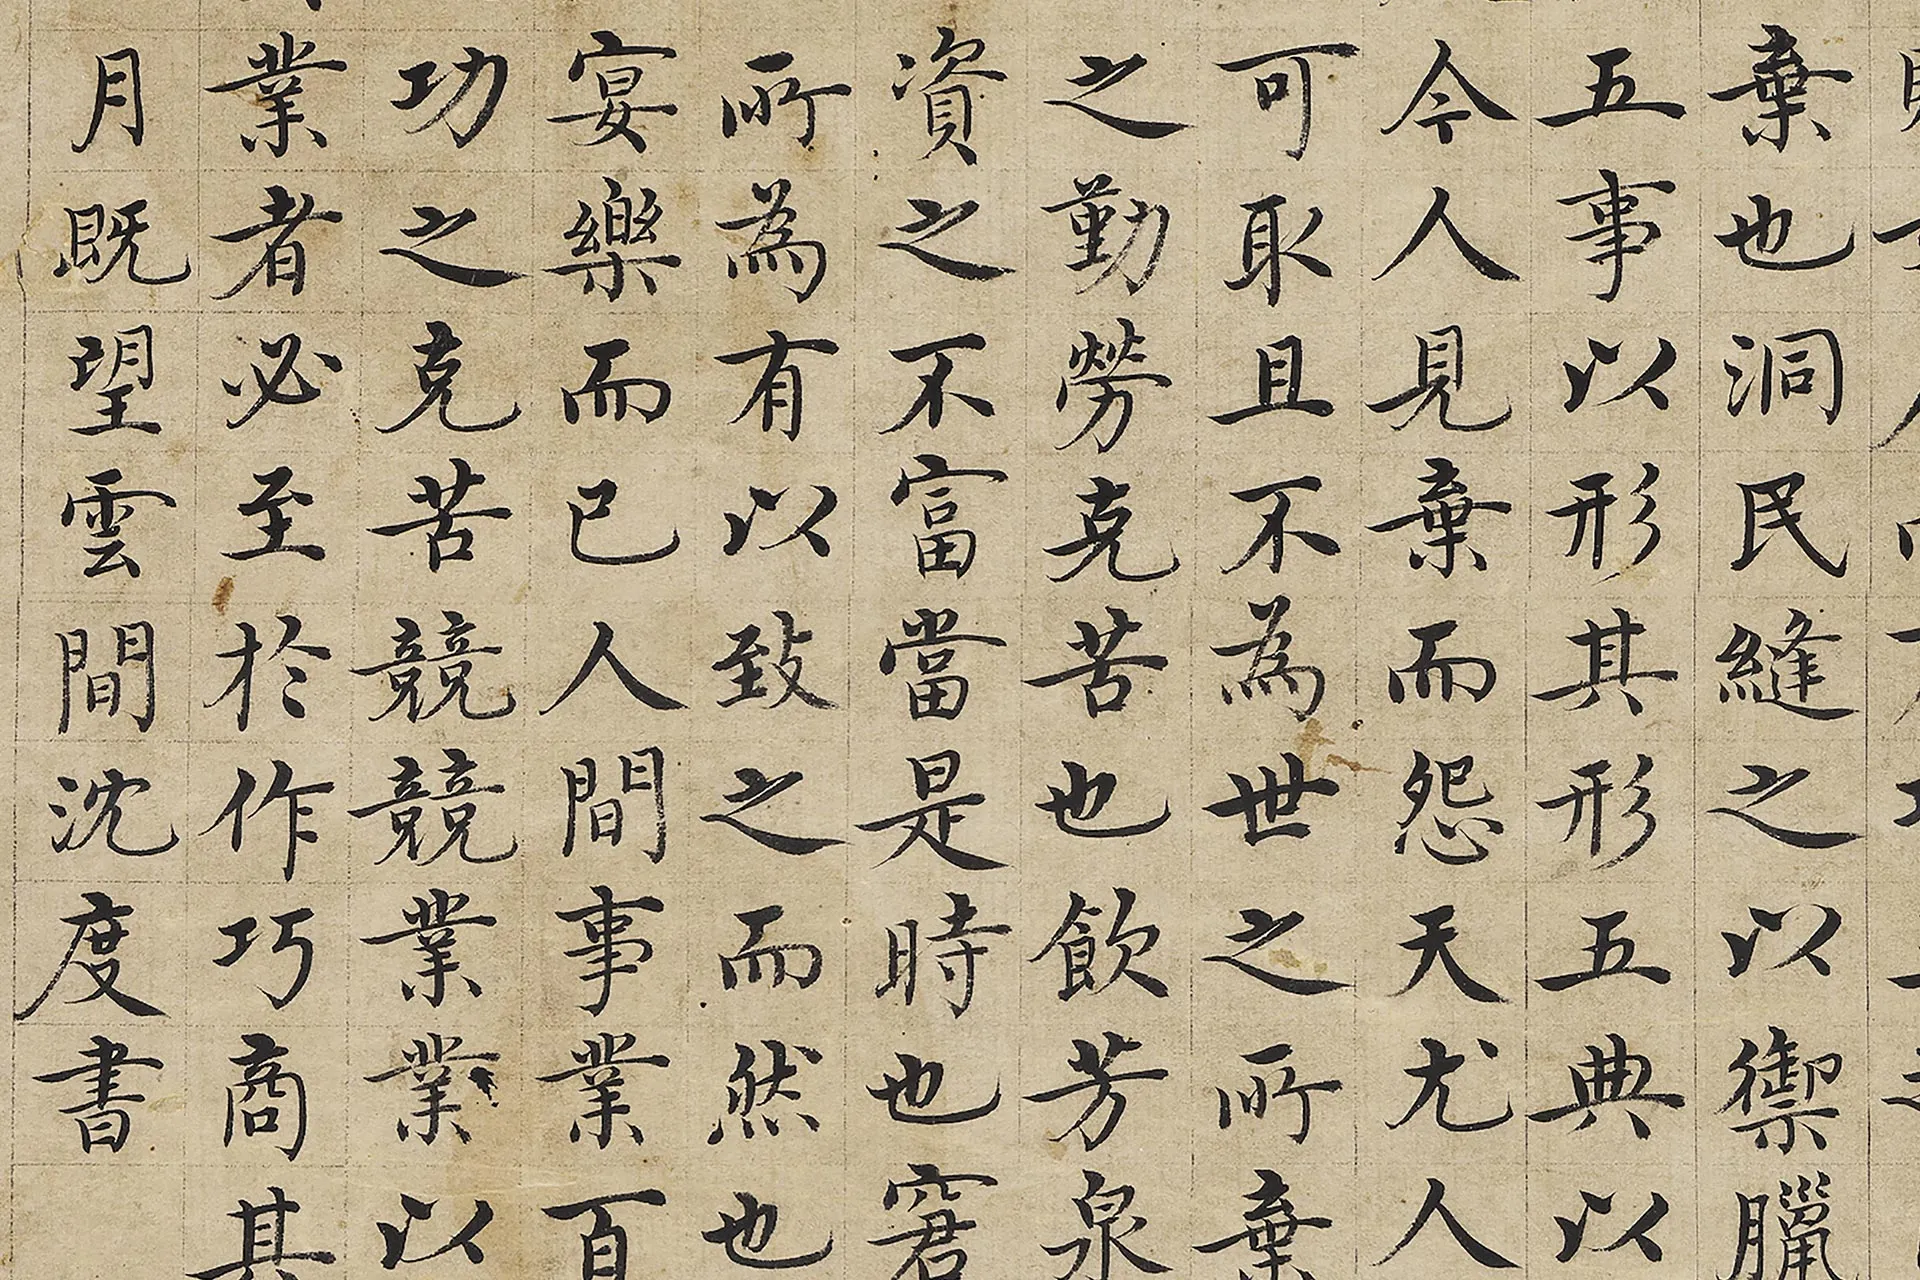 棄也洞民縫之以禦臘
五事以形其形五典以
今人見棄而怨天尤人
可取且不為世之所棄
之勤勞克苦也飲芳泉
資之不富當是時也窘
所為有以致之而然也
宴樂而已人間事業百
功之克苦競競業業以
業者必至於作巧商其
月既望雲間沈度書